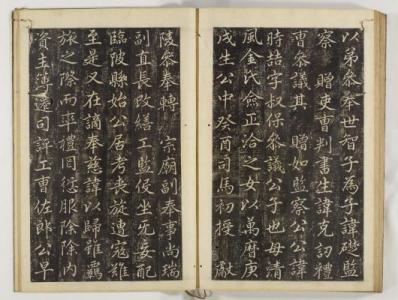 以弟參奉世智子為子諱礎監
察 贈吏曹判書生諱克訒禮
曹參議其 贈如監察公公諱
時字叔保參議公子也母清
風金氏僉正洽之女以萬曆庚
戌生公中癸酉司馬初授獻
陵參奉轉 宗廟副奉事尚瑞
副直長改繕工監役坐妄配
臨陂縣始公居考喪旋遭寇難
至是又在謫奉慈諱以歸雖羈
旅之際而率禮罔愆服除除內
資主簿遷司評工曹佐郎公早